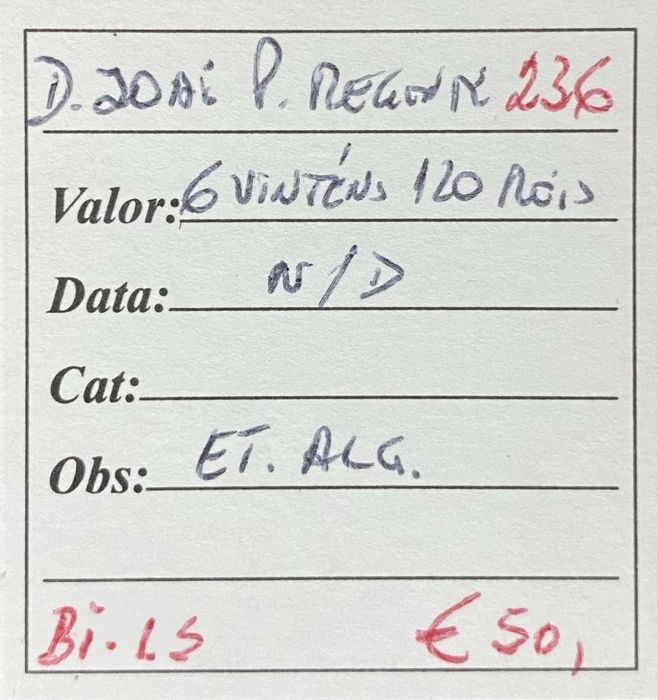 D. JOAÕ P. REGENTE 236
Valor: 6 VINTÉNS 120 RÉIS
Data: N/D
Cat:
Obs: ET. ALG.
Bi. LS € 50,